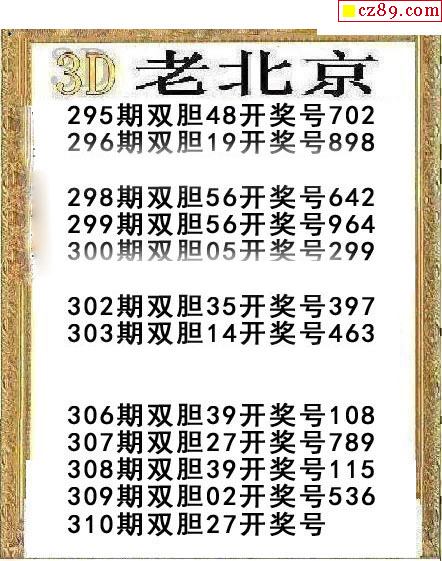 cz89.com
3D 老北京
295期双胆48开奖号702
296期双胆19开奖号898
298期双胆56开奖号642
299期双胆56开奖号964
300期双胆05开奖号299
302期双胆35开奖号397
303期双胆14开奖号463
306期双胆39开奖号108
307期双胆27开奖号789
308期双胆39开奖号115
309期双胆02开奖号536
310期双胆27开奖号